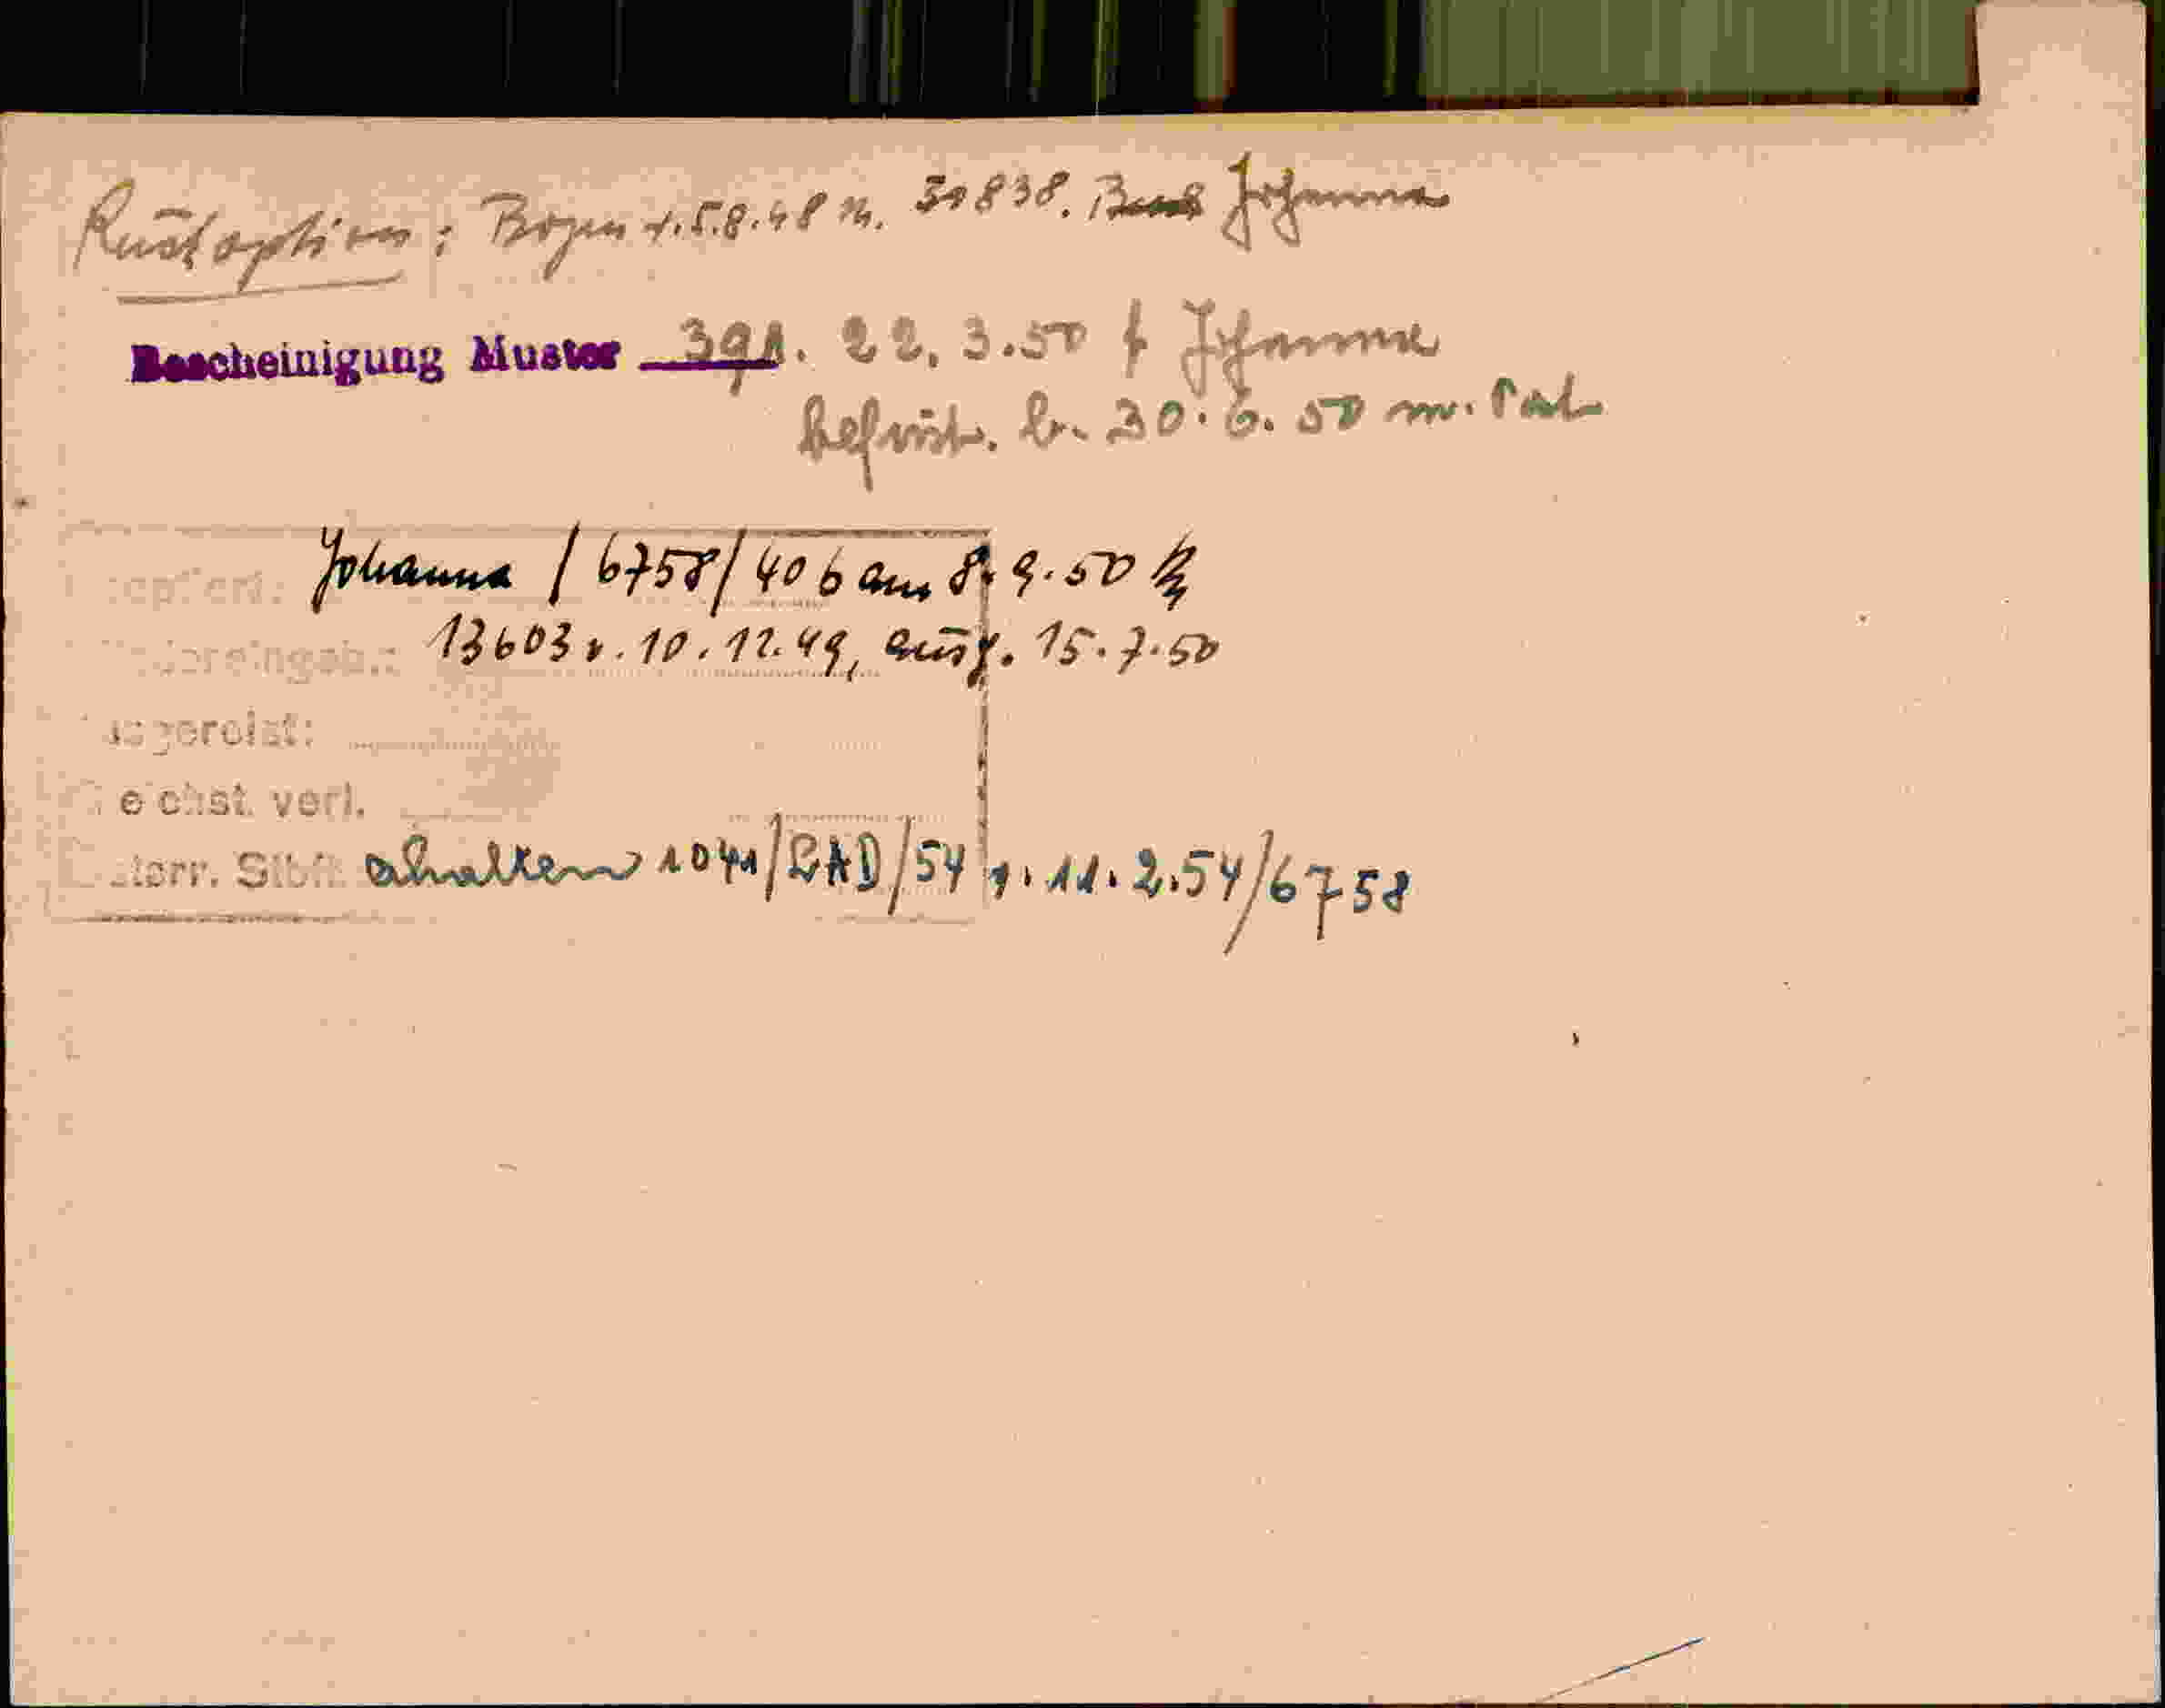 Rückoption: Bozen v. 5.8.48 N. 30838. Johanna
Bescheinigung Muster 39A. 22. 3.50 f Johanna
befrist. b. 30.6.50 m.
Johanna / 6758/ 406 am 8.9.50
13603 v. 10.12.49, ausg. 15.7.50
erhalten 1041/LAD/54 v. 11.2.54/6758